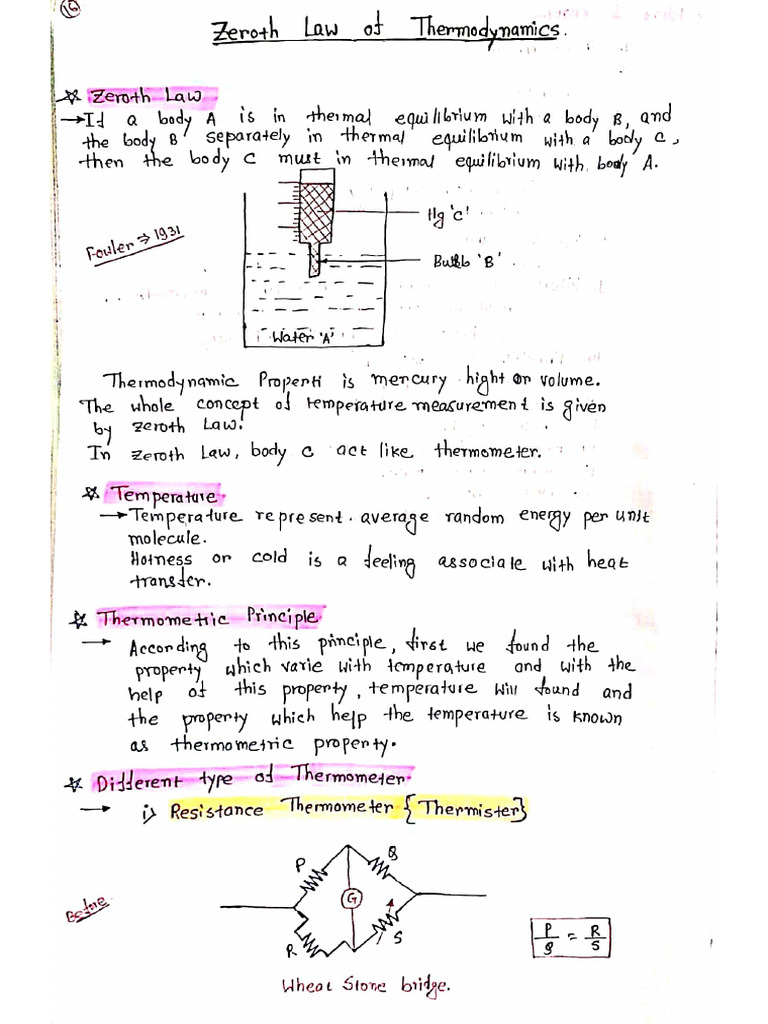 16
Zeroth Law of Thermodynamics.
Zeroth Law
→ If a body A is in thermal equilibrium with a body B, and
the body B separately in thermal equilibrium with a body C,
then the body C must in thermal equilibrium with body A.
Hg 'C'
Fowler ⇒ 1931
Bulb 'B'
Water 'A'
Thermodynamic Properti is mercury hight or volume.
The whole concept of temperature measurement is given
by zeroth Law.
In zeroth Law, body C act like thermometer.
Temperature
→ Temperature represent average random energy per unit
molecule.
Hotness or cold is a feeling associate with heat
transfer.
Thermometric Principle
→ According to this principle, first we found the
property which varie with temperature and with the
help of this property, temperature will found and
the property which help the temperature is known
as thermometric property.
Different type of Thermometer.
→ i) Resistance Thermometer {Thermister}
P Q
Before
G
R S
P/Q = R/S
Wheat Stone bridge.